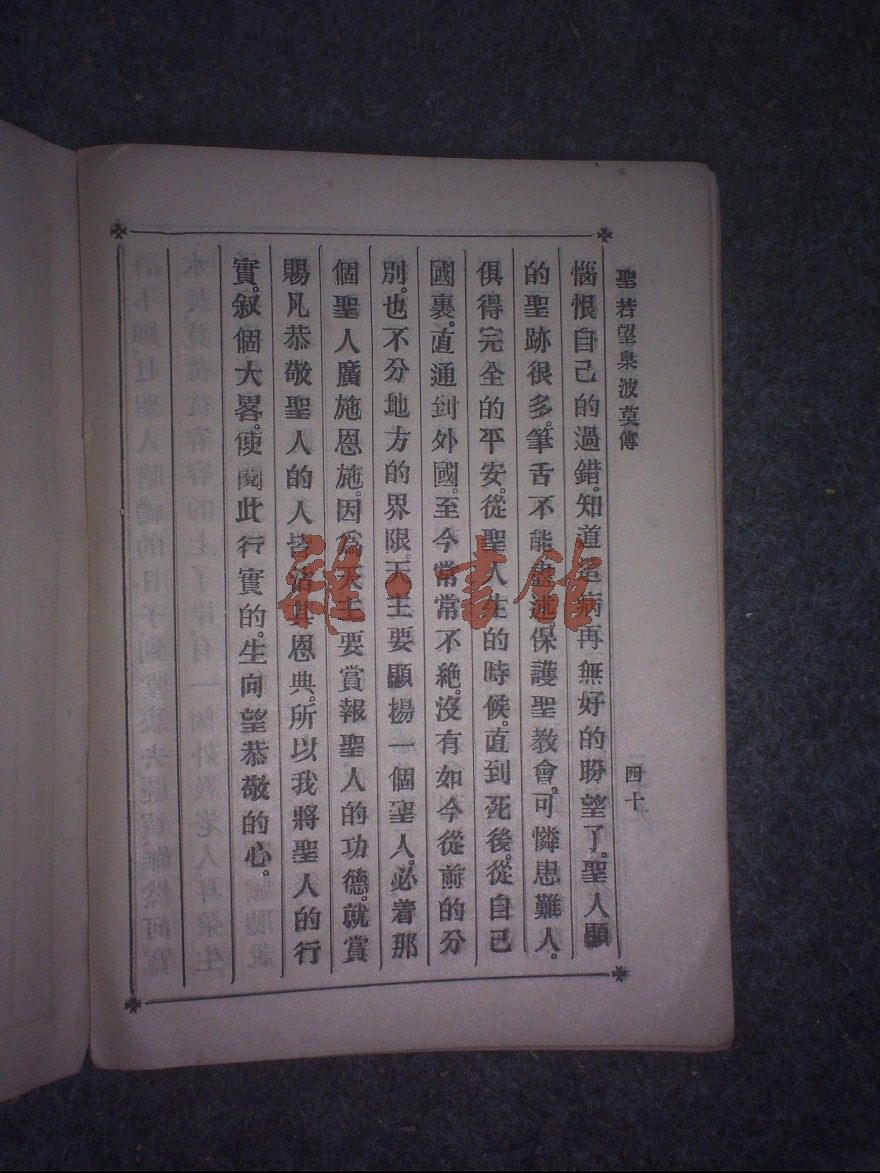 聖若望臬波莫傳
四十
惱恨自己的過錯。知道這病再無好的盼望了。聖人顯
的聖跡很多。筆舌不能盡述。保護聖教會。可憐患難人。
俱得完全的平安。從聖人生的時候。直到死後。從自己
國裏。直通到外國。至今常常不絕。沒有如今從前的分
別。也不分地方的界限。天主要顯揚一個聖人。必着那
個聖人廣施恩施。因爲天主要賞報聖人的功德。就賞
賜凡恭敬聖人的人皆沾其恩典。所以我將聖人的行
實。叙個大畧。使閱此行實的。生向望恭敬的心。
雜·書館